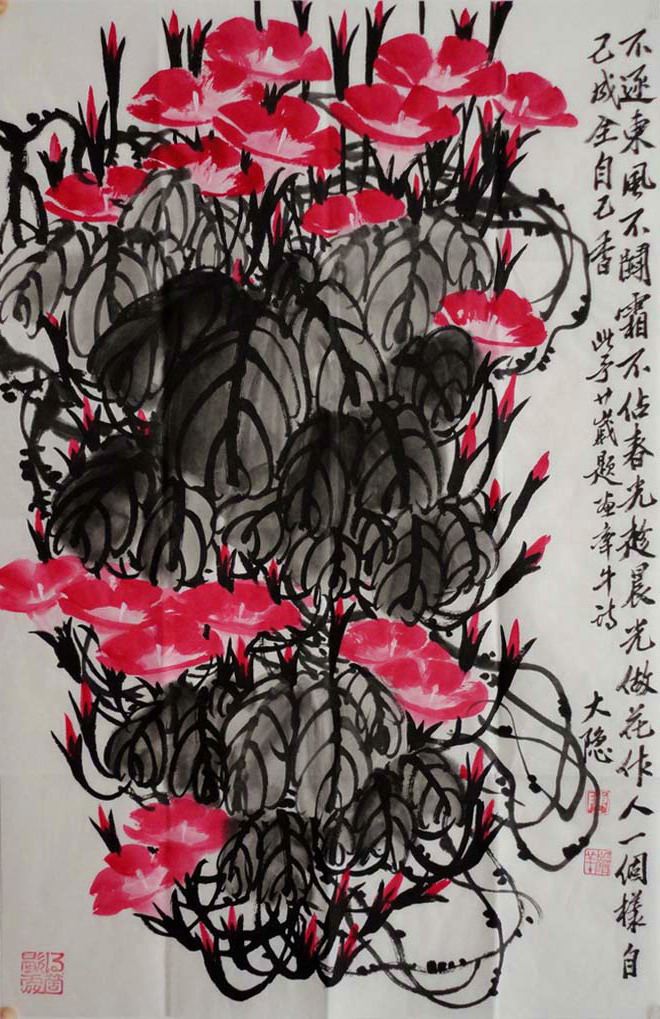 不逐東風不鬪霜不佔春光趁晨光做花作人一個樣自
己成全自己香 此予廿歲題画牽牛诗
大隐